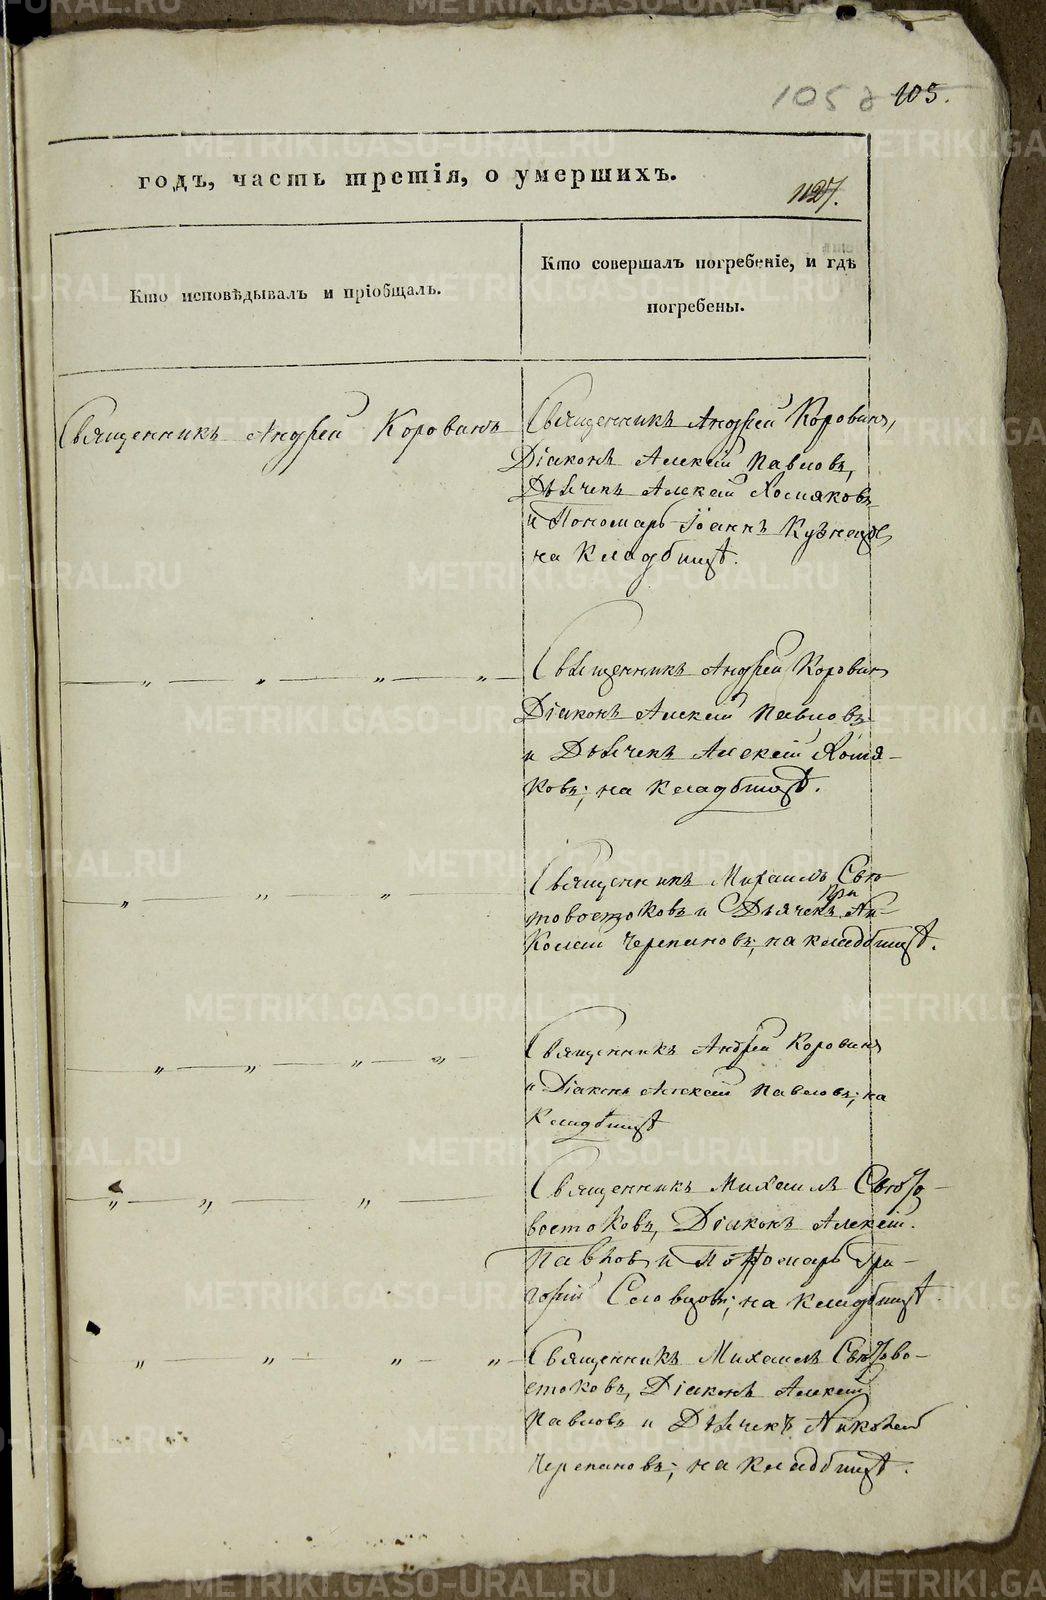 105 д 105.
годъ, часть третія, о умершихъ.
1127.
Кто исповѣдывалъ и пріобщалъ.
Кто совершалъ погребеніе, и гдѣ
погребены.
Священникъ Андрей Коровинъ
Священникъ Андрей Коровинъ,
Діаконъ Алексѣй Павловъ,
Дьячекъ Алексѣй Хомяковъ
и Пономарь Іоаннъ Кузнецовъ
на кладбищѣ.
— „ — „ — „ — „ —
Священникъ Андрей Коровинъ
Діаконъ Алексей Павловъ
и Дьячекъ Алексѣй Хомя-
ковъ; на кладбищѣ.
— „ — „ — „ —
Священникъ Михаилъ Свѣ-
товостоковъ и Дьячекъ Ни-
колай Черепановъ; на кладбищѣ.
— „ — „ — „ — „ —
Священникъ Андрей Коровинъ
и Діаконъ Алексей Павловъ; на
кладбищѣ
„ — „ — „ —
Священникъ Михаилъ Свѣто-
востоковъ, Діаконъ Алексѣй
Павловъ и Пономарь Гри-
горій Словцовъ; на кладбищѣ.
„ — „ — „ — „ —
Священникъ Михаилъ Свѣтово-
стоковъ, Діаконъ Алексей
Павловъ и Дьячекъ Николай
Черепановъ; на кладбищѣ.
METRIKI.GASO-URAL.RU